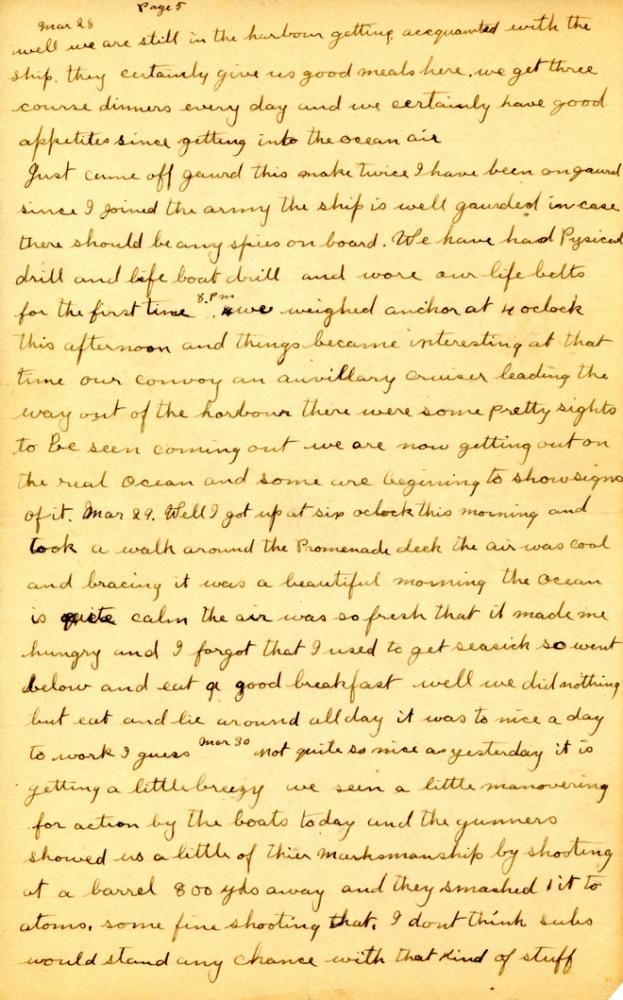 Page 5
Mar 28
well we are still in the harbour getting accquainted with the
ship. they certainly give us good meals here. we get three
course dinners every day and we certainly have good
appetites since getting into the ocean air
Just came off gaurd this make twice I have been on gaurd
since I joined the army the ship is well gaurded in case
there should be any spies on board. We have had Pysical
drill and life boat drill and wore our life belts
for the first time 8.Pm we weighed anchor at 4 oclock
this afternoon and things became interesting at that
time our convoy an auvillary cruiser leading the
way out of the harbour there were some pretty sights
to be seen coming out we are now getting out on
the real Ocean and some are begining to show signs
of it. Mar 29. Well I got up at six oclock this morning and
took a walk around the Promenade deck the air was cool
and bracing it was a beautiful morning the ocean
is quite calm the air was so fresh that it made me
hungry and I forgot that I used to get seasick so went
below and eat a good breakfast well we did nothing
but eat and lie around all day it was to nice a day
to work I guess Mar 30 not quite so nice as yesterday it is
getting a little breezy we seen a little manovering
for action by the boats today and the gunners
showed us a little of thier marksmanship by shooting
at a barrel 800 yds away and they smashed it to
atoms. some fine shooting that. I dont think subs
would stand any chance with that kind of stuff